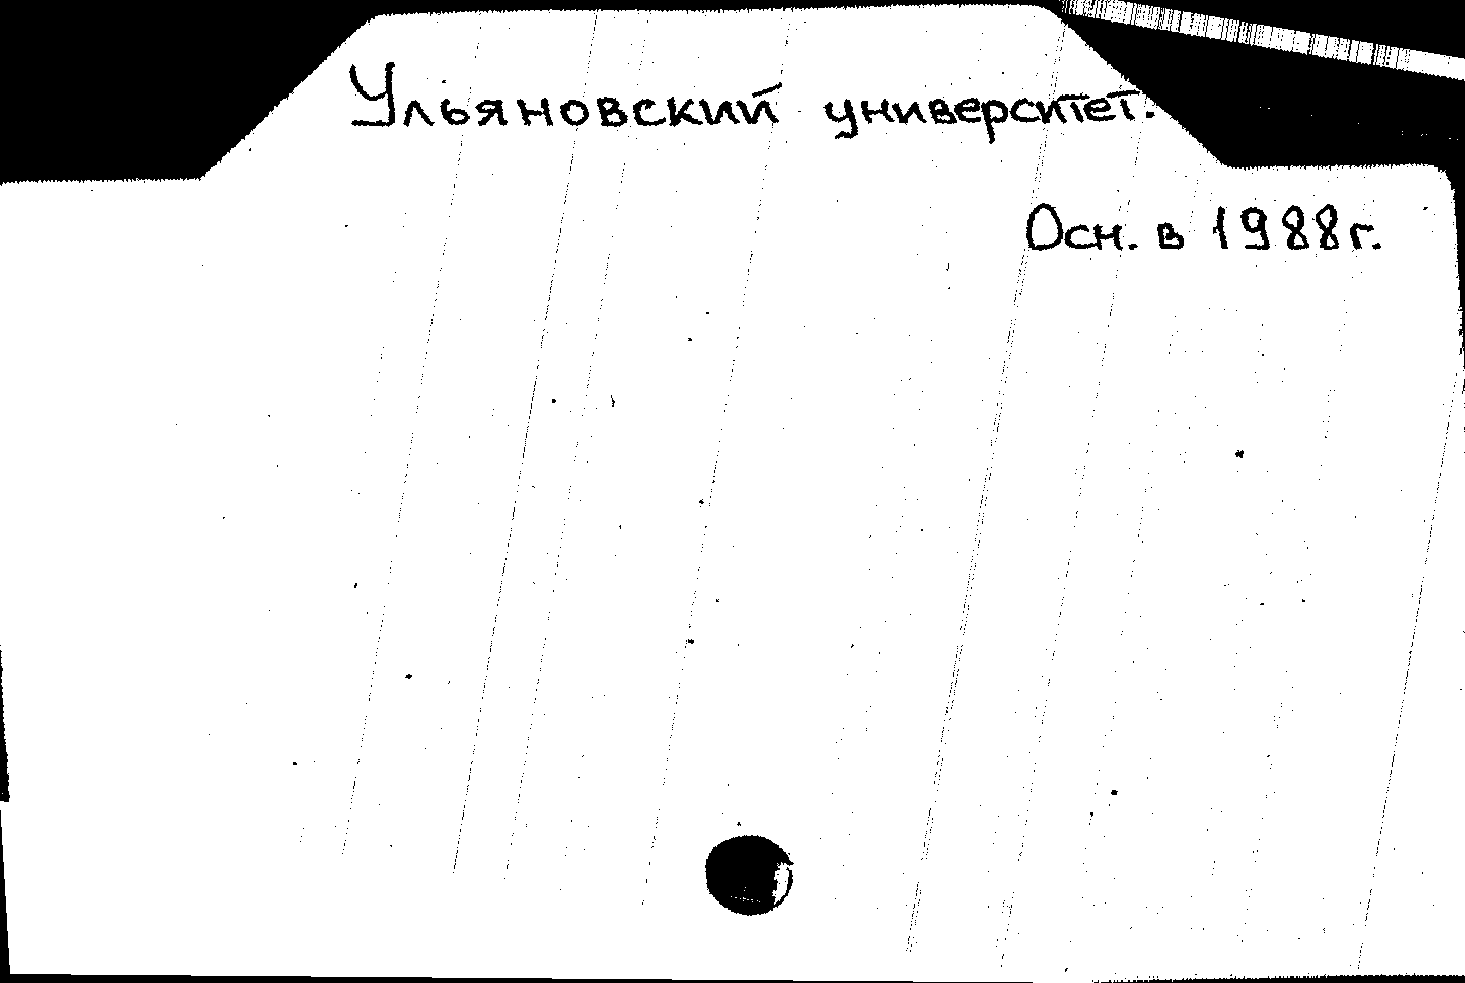 Ульяновский университет.
Осн. в 1988г.